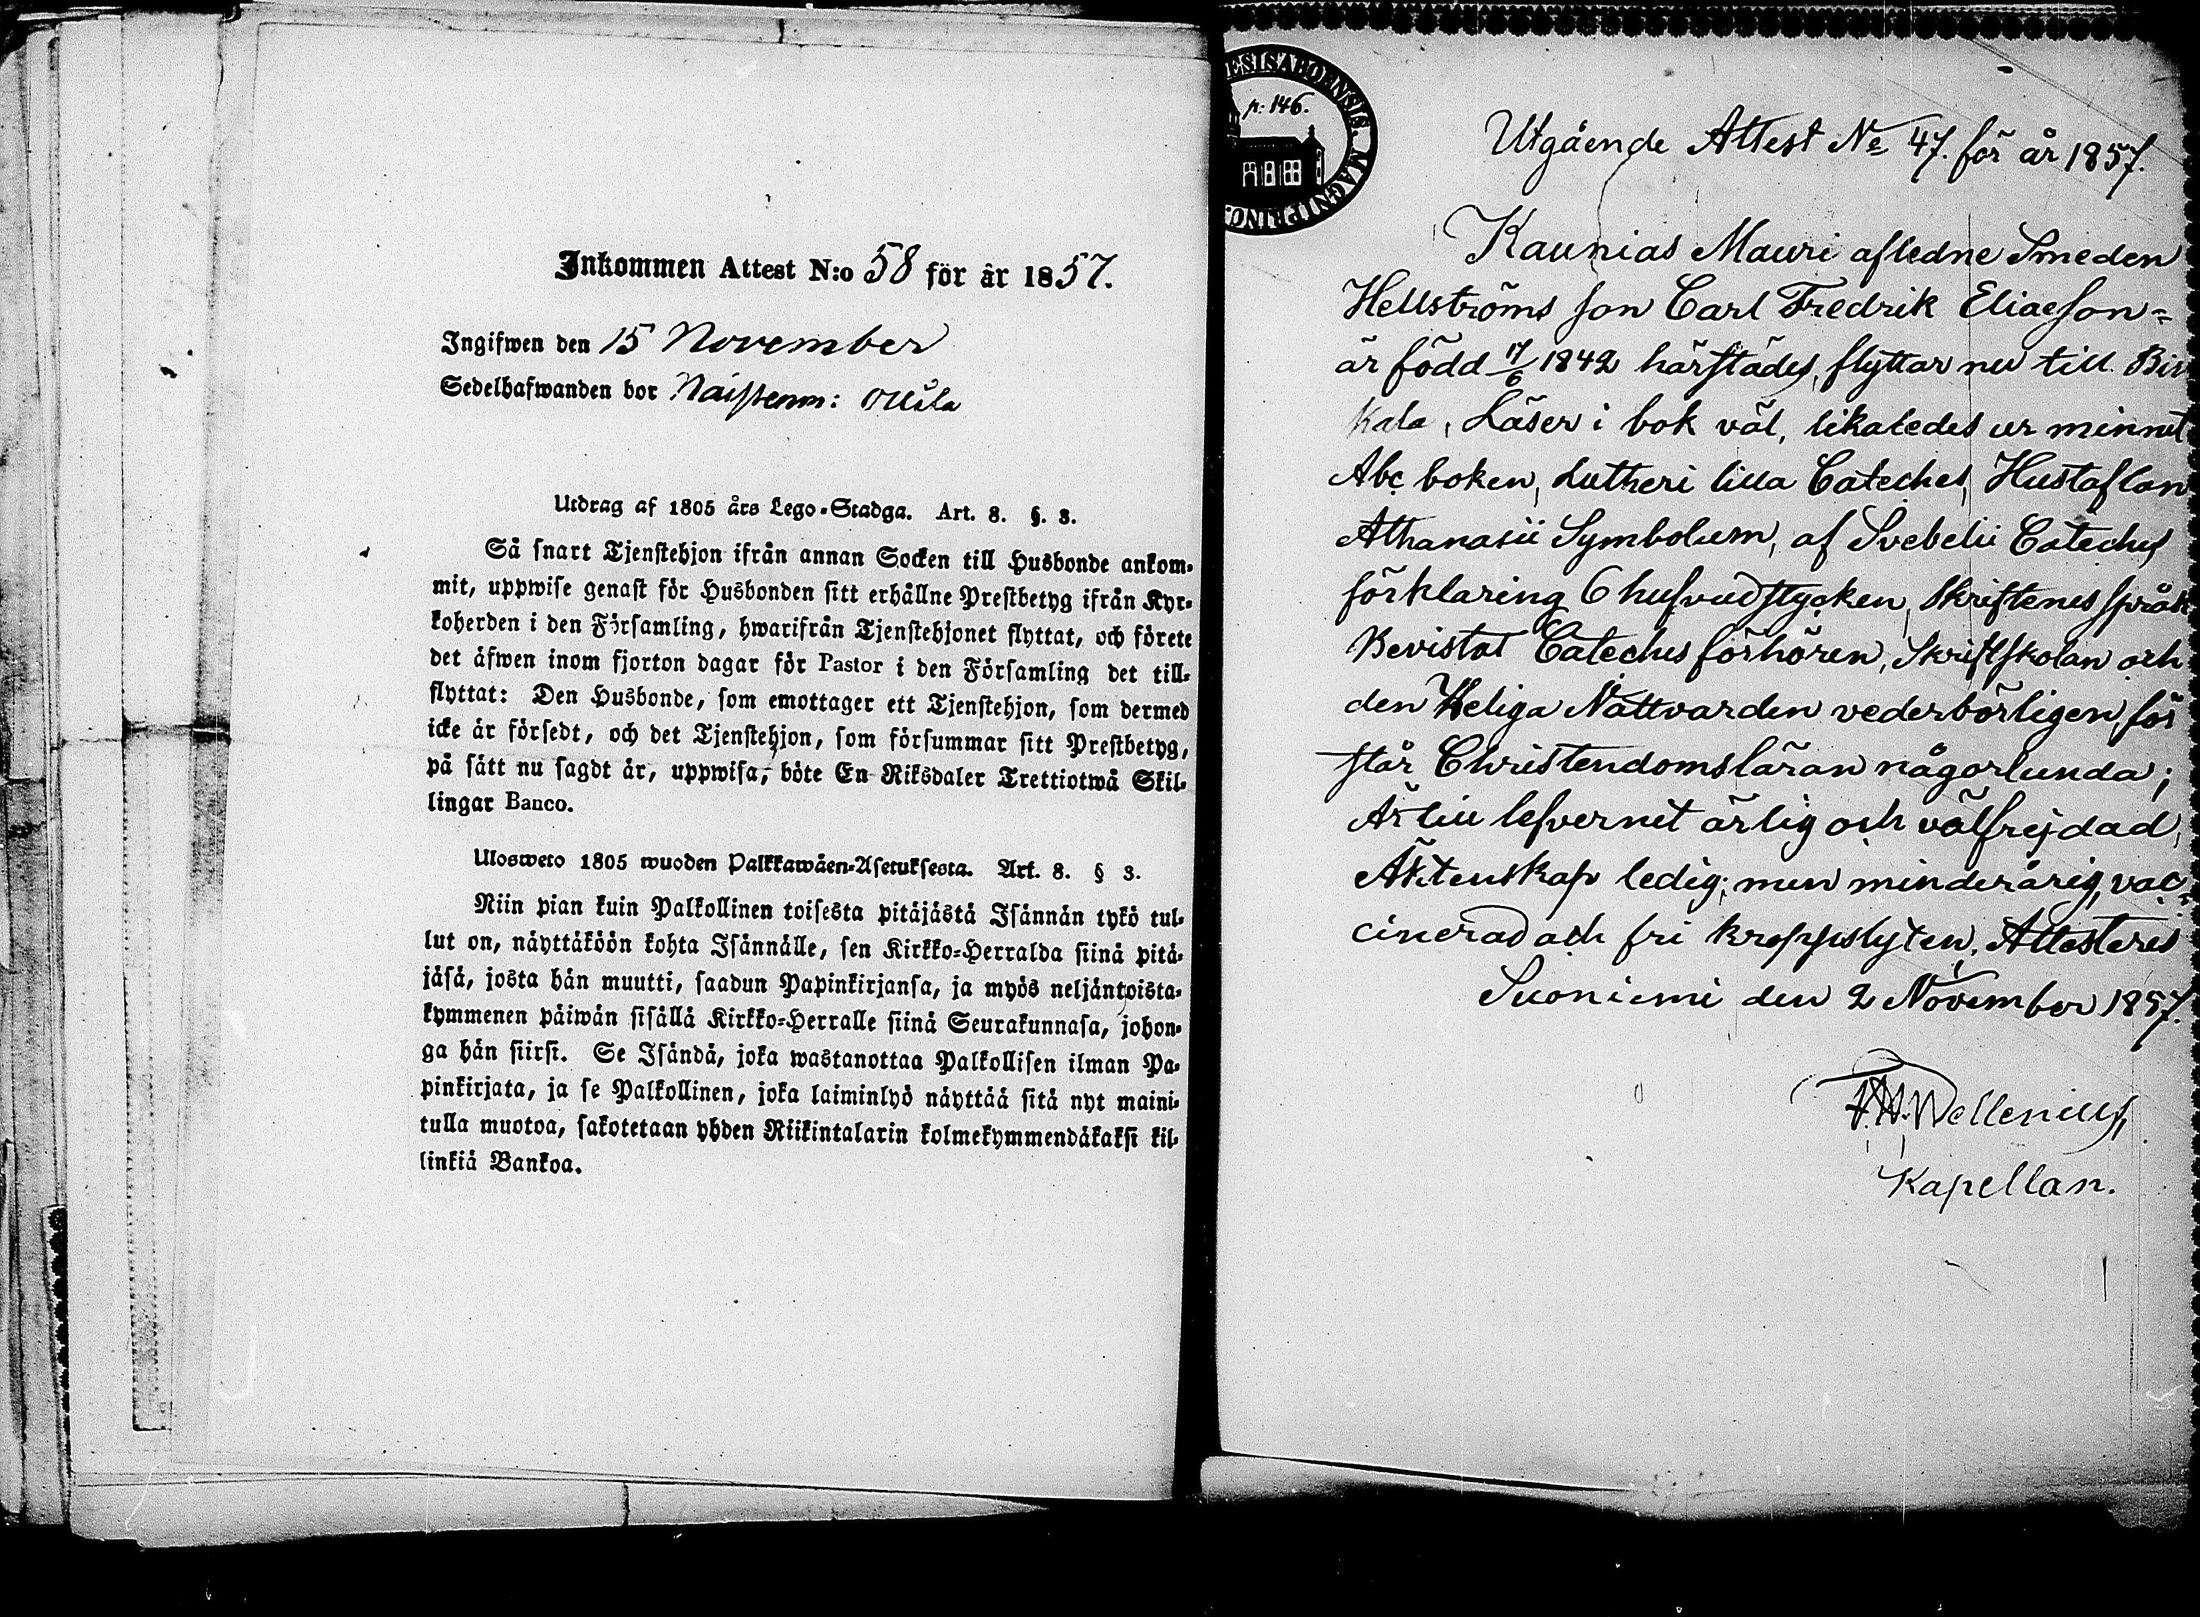 Inkommen Attest N:o 58 för år 1857.
Ingifwen den 15 November
Sedelhafwanden bor Naistenm: Ollila
Utdrag af 1805 års Lego-Stadga. Art. 8. §. 3.
Så snart Tjenstehjon ifrån annan Socken till Husbonde ankom-
mit, uppwise genast för Husbonden sitt erhållne Prestbetyg ifrån Kyr-
koherden i den Församling, hwarifrån Tjenstehjonet flyttat, och förete
det äfwen inom fjorton dagar för Pastor i den Församling det till-
flyttat: Den Husbonde, som emottager ett Tjenstehjon, som dermed
icke är försedt, och det Tjenstehjon, som försummar sitt Prestbetyg,
på sätt nu sagdt är, uppwisa, böte En Riksdaler Trettiotwå Skil-
lingar Banco.
Ulosweto 1805 wuoden Palkkawäen-Asetuksesta. Art. 8. § 3.
Niin pian kuin Palkollinen toisesta pitäjästä Isännän tykö tul-
lut on, näyttäköön kohta Isännälle, sen Kirkko-Herralda siinä pitä-
jäsä, josta hän muutti, saadun Papinkirjansa, ja myös neljäntoista-
kymmenen päiwän sisällä Kirkko-Herralle siinä Seurakunnasa, johon-
ga hän siirsi. Se Isändä, joka wastanottaa Palkollisen ilman Pa-
pinkirjata, ja se Palkollinen, joka laiminlyö näyttää sitä nyt maini-
tulla muotoa, sakotetaan yhden Riikintalarin kolmekymmendäkaksi kil-
linkiä Bankoa.
ESIS ABOENSIS. MAGNI PRINC
p. 146.
Utgående Attest No 47. för år 1857.
Kaunias Mauri afledne Smeden
Hellströms son Carl Fredrik Eliaeson-
är född 17/6 1842 härstädes, flyttar nu till Bir
kala, Läser i bok väl, likaledes ur minnet
Abc boken, Lutheri lilla Cateches, Hustaflan
Athanasii Symbolum, af Svebelii Cateches
förklaring 6 hufvudstycken, Skriftenes språk
Bevistat Cateches förhören, Skriftskolan och
den Heliga Nattvarden vederbörligen, för
står Christendomsläran någorlunda;
Är till lefvernet ärlig och välfrejdad,
Äktenskap ledig; men minderårig, vac-
cinerad och fri kroppslyten. Attesteres
Suoniemi den 2 November 1857.
Wellenius,
Kapellan.